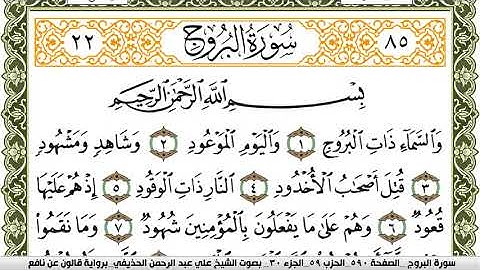 ٨٥ سُورَةُ الْبُرُوجِ ٢٢
بِسْمِ اللَّهِ الرَّحْمَٰنِ الرَّحِيمِ
وَالسَّمَآءِ ذَاتِ الْبُرُوجِ ١ وَالْيَوْمِ الْمَوْعُودِ ٢ وَشَاهِدٍ وَمَشْهُودٍ
٣ قُتِلَ أَصْحَٰبُ الْأُخْدُودِ ٤ النَّارِ ذَاتِ الْوَقُودِ ٥ إِذْ هُمْ عَلَيْهَا
قُعُودٌ ٦ وَهُمْ عَلَىٰ مَا يَفْعَلُونَ بِالْمُؤْمِنِينَ شُهُودٌ ٧ وَمَا نَقَمُوا
سورة البروج _ الصفحة ٥٩٠ _ الحزب ٥٩ _ الجزء ٣٠ _ بصوت الشيخ علي عبد الرحمن الحذيفي _ برواية قالون عن نافع